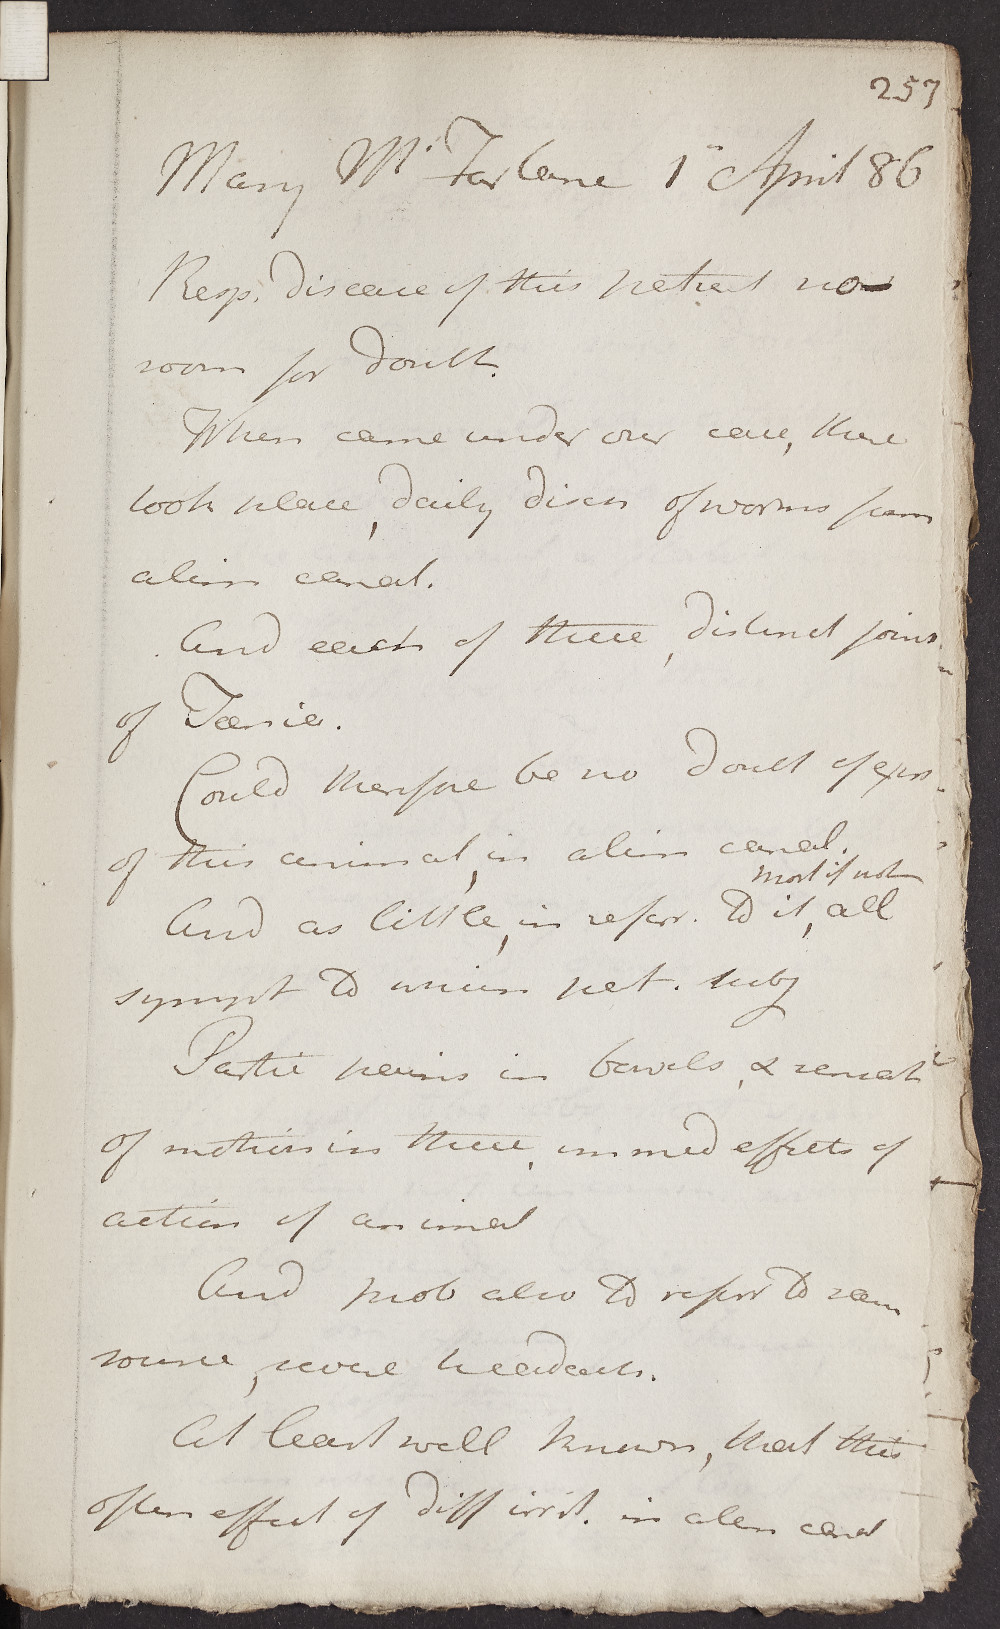 257
Mary Mc Farlane 1st April 86
Resp. Disease of this patient no
room for Doubt.
When came under our care, there
took place, daily disch of worms from
alim canal.
And each of these, distinct joints
of Taenia.
Could therefore be no Doubt of exist
of this animal, in alim canal.
most if not
And as little, in referr. to it, all
sympt to which pat. subj
Partic pains in bowels, & sensat
of motion in these, immed effects of
action of animal
And prob also to referr to same
source, severe headach.
At least well known, that this
often effect of Diff irrit. in alim canal